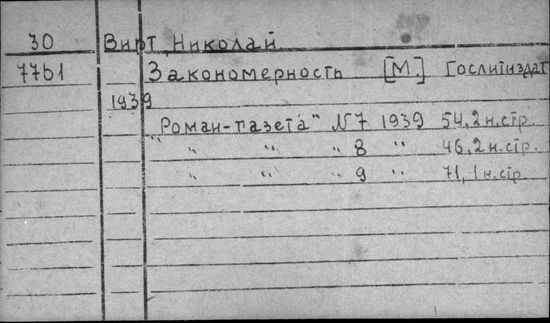 30 Вирт Николай
7761 Закономерность [М.] Гослитиздат
1939
"Роман-газета" №7 1939 54,2н.стр.
" " " 8 " 46,2н.стр.
" " " 9 " 71,1н.стр.